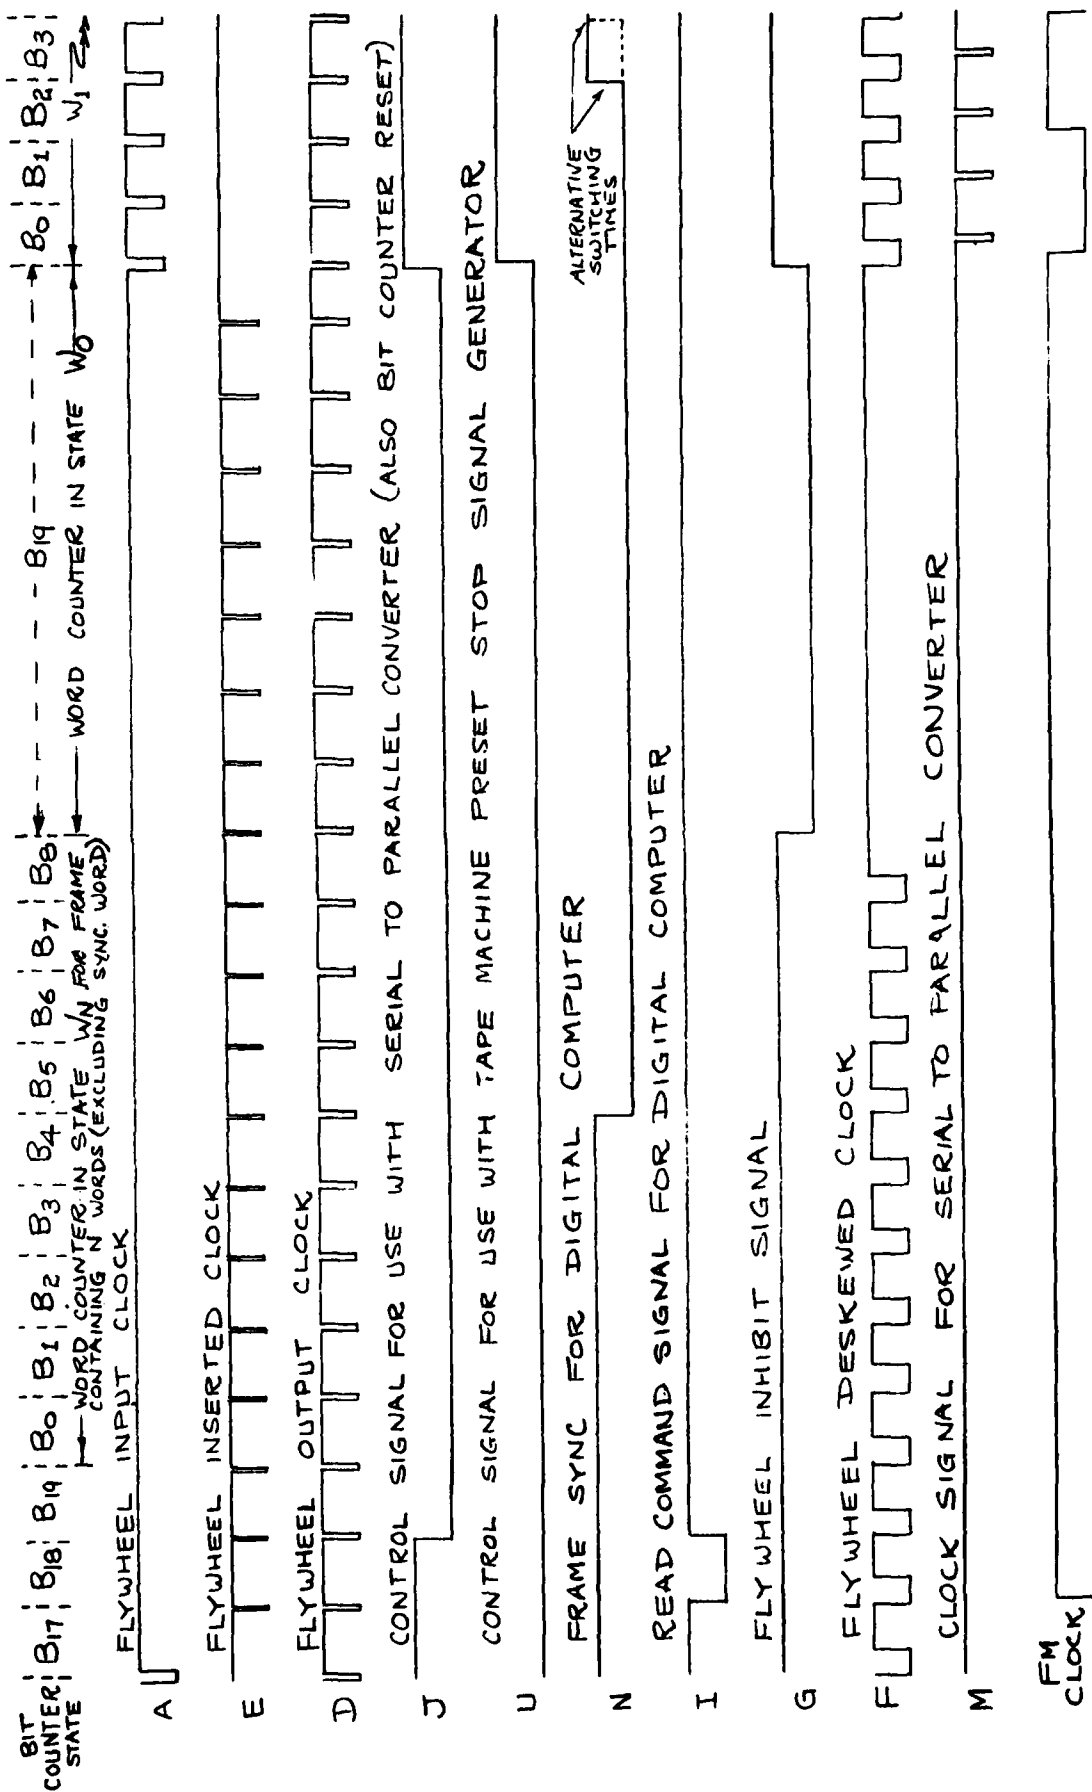 BIT COUNTER STATE
B17 B18 B19 B0 B1 B2 B3 B4 B5 B6 B7 B8 B19 B0 B1 B2 B3
WORD COUNTER IN STATE WN FOR FRAME
CONTAINING N WORDS (EXCLUDING SYNC. WORD)
WORD COUNTER IN STATE W0
W1
A FLYWHEEL INPUT CLOCK
E FLYWHEEL INSERTED CLOCK
D FLYWHEEL OUTPUT CLOCK
J CONTROL SIGNAL FOR USE WITH SERIAL TO PARALLEL CONVERTER (ALSO BIT COUNTER RESET)
U CONTROL SIGNAL FOR USE WITH TAPE MACHINE PRESET STOP SIGNAL GENERATOR
N FRAME SYNC FOR DIGITAL COMPUTER
ALTERNATIVE
SWITCHING
TIMES
I READ COMMAND SIGNAL FOR DIGITAL COMPUTER
G FLYWHEEL INHIBIT SIGNAL
F FLYWHEEL DESKEWED CLOCK
M CLOCK SIGNAL FOR SERIAL TO PARALLEL CONVERTER
FM
CLOCK